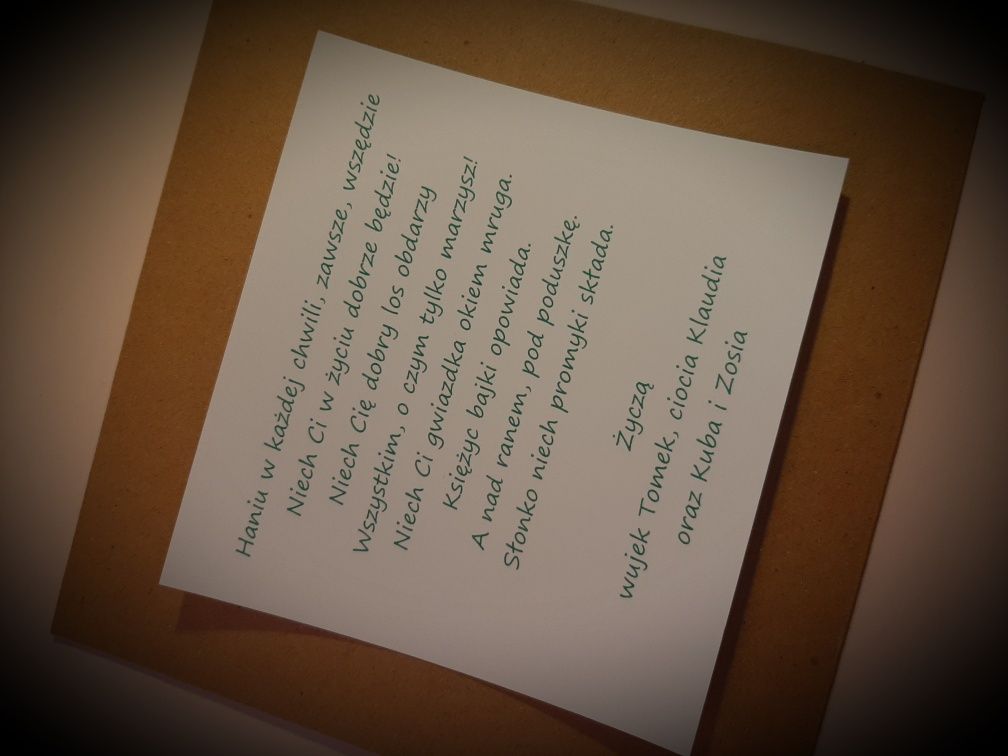 Haniu w każdej chwili, zawsze, wszędzie
Niech Ci w życiu dobrze będzie!
Niech Cię dobry los obdarzy
Wszystkim, o czym tylko marzysz!
Niech Ci gwiazdka okiem mruga.
Księżyc bajki opowiada.
A nad ranem, pod poduszkę.
Słonko niech promyki składa.
Życzą
wujek Tomek, ciocia Klaudia
oraz Kuba i Zosia